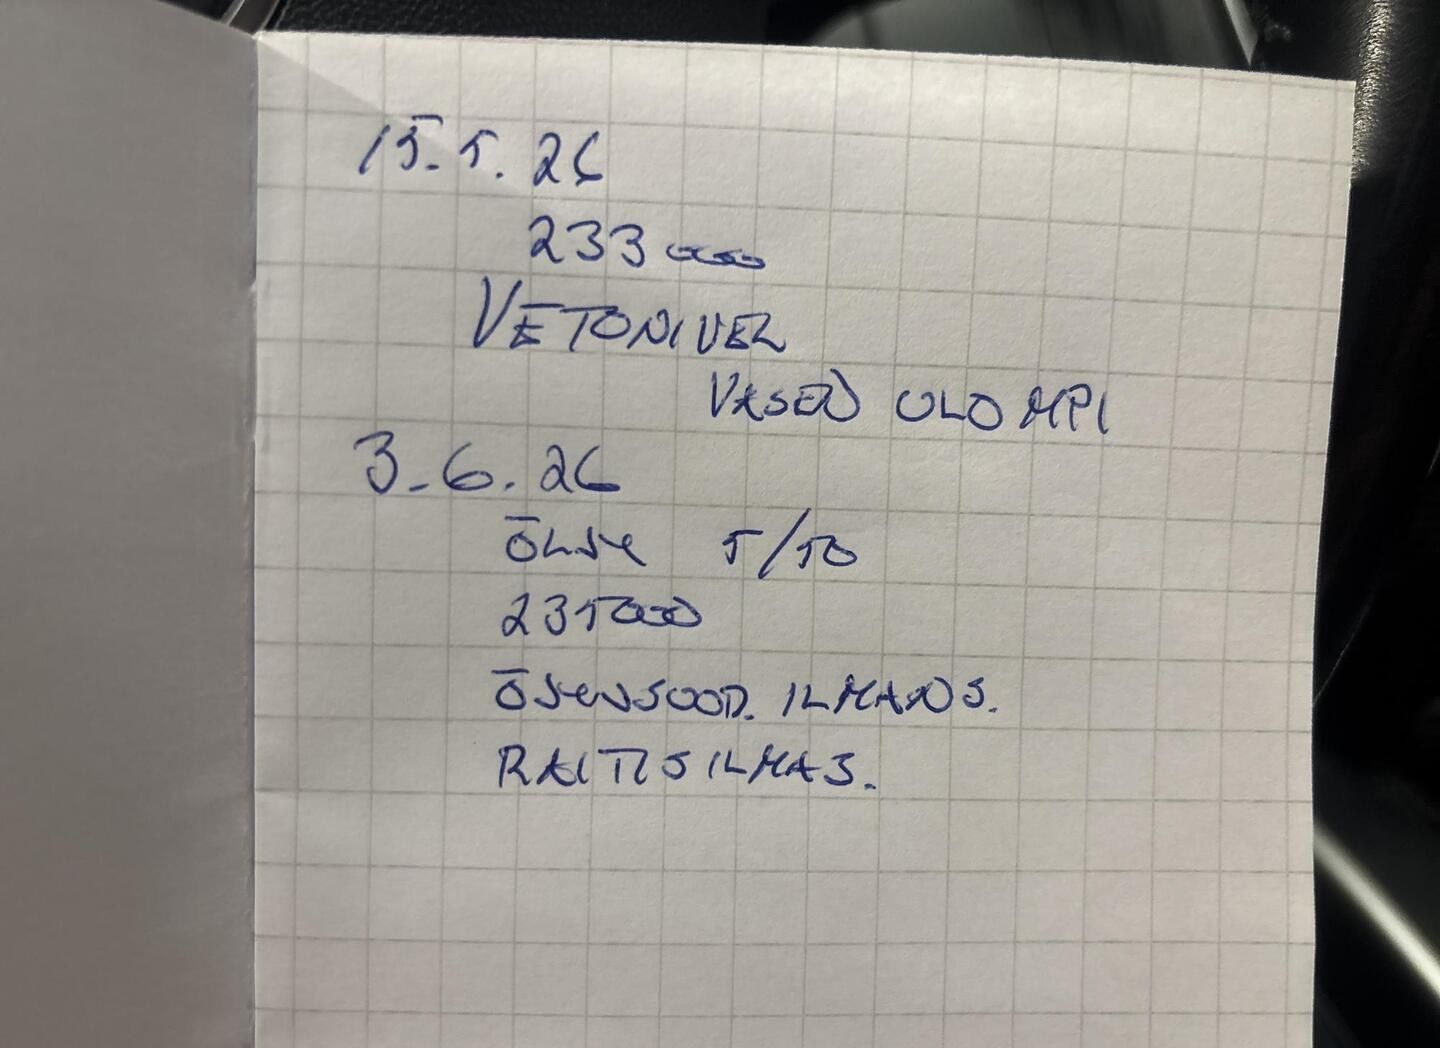 15.5.26
233000
VETONIVEL
VASEN ULOMPI
3.6.26
ÖLJY 5/50
235000
ÖJYNSUOD. ILMANS.
RAITISILMAS.